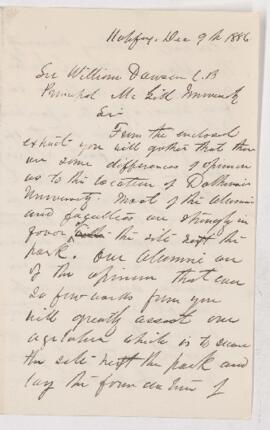 Halifax, Dec 9th 1886
Sir William Dawson C.B
Principal McGill University
Sir
From the enclosed
extract you will gather that there
are some differences of opinion
as to the location of Dalhousie
University. Most of the Alumni
and faculties are strongly in
favor the site next the
park. Our Alumni are
of the opinion that even
a few words from you
will greatly assist our
agitation which is to secure
the site next the park and
lay the foundation of